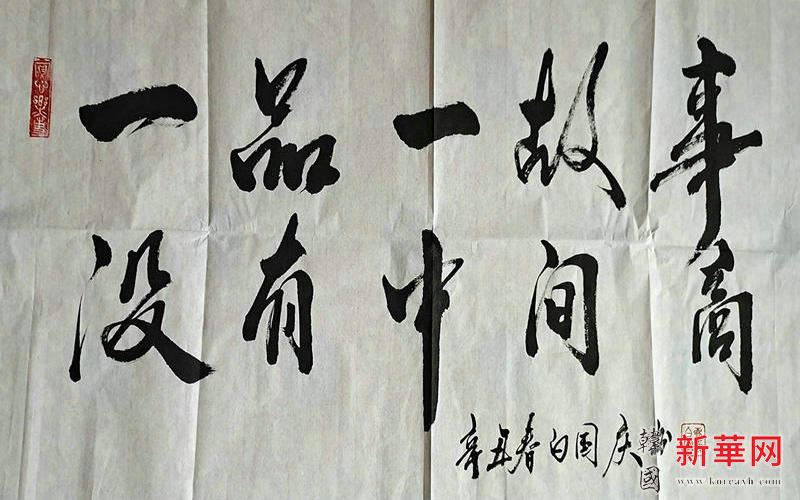 一品一故事
没有中间商
辛丑春白国庆
韓國
新華网
www.koreaxh.com